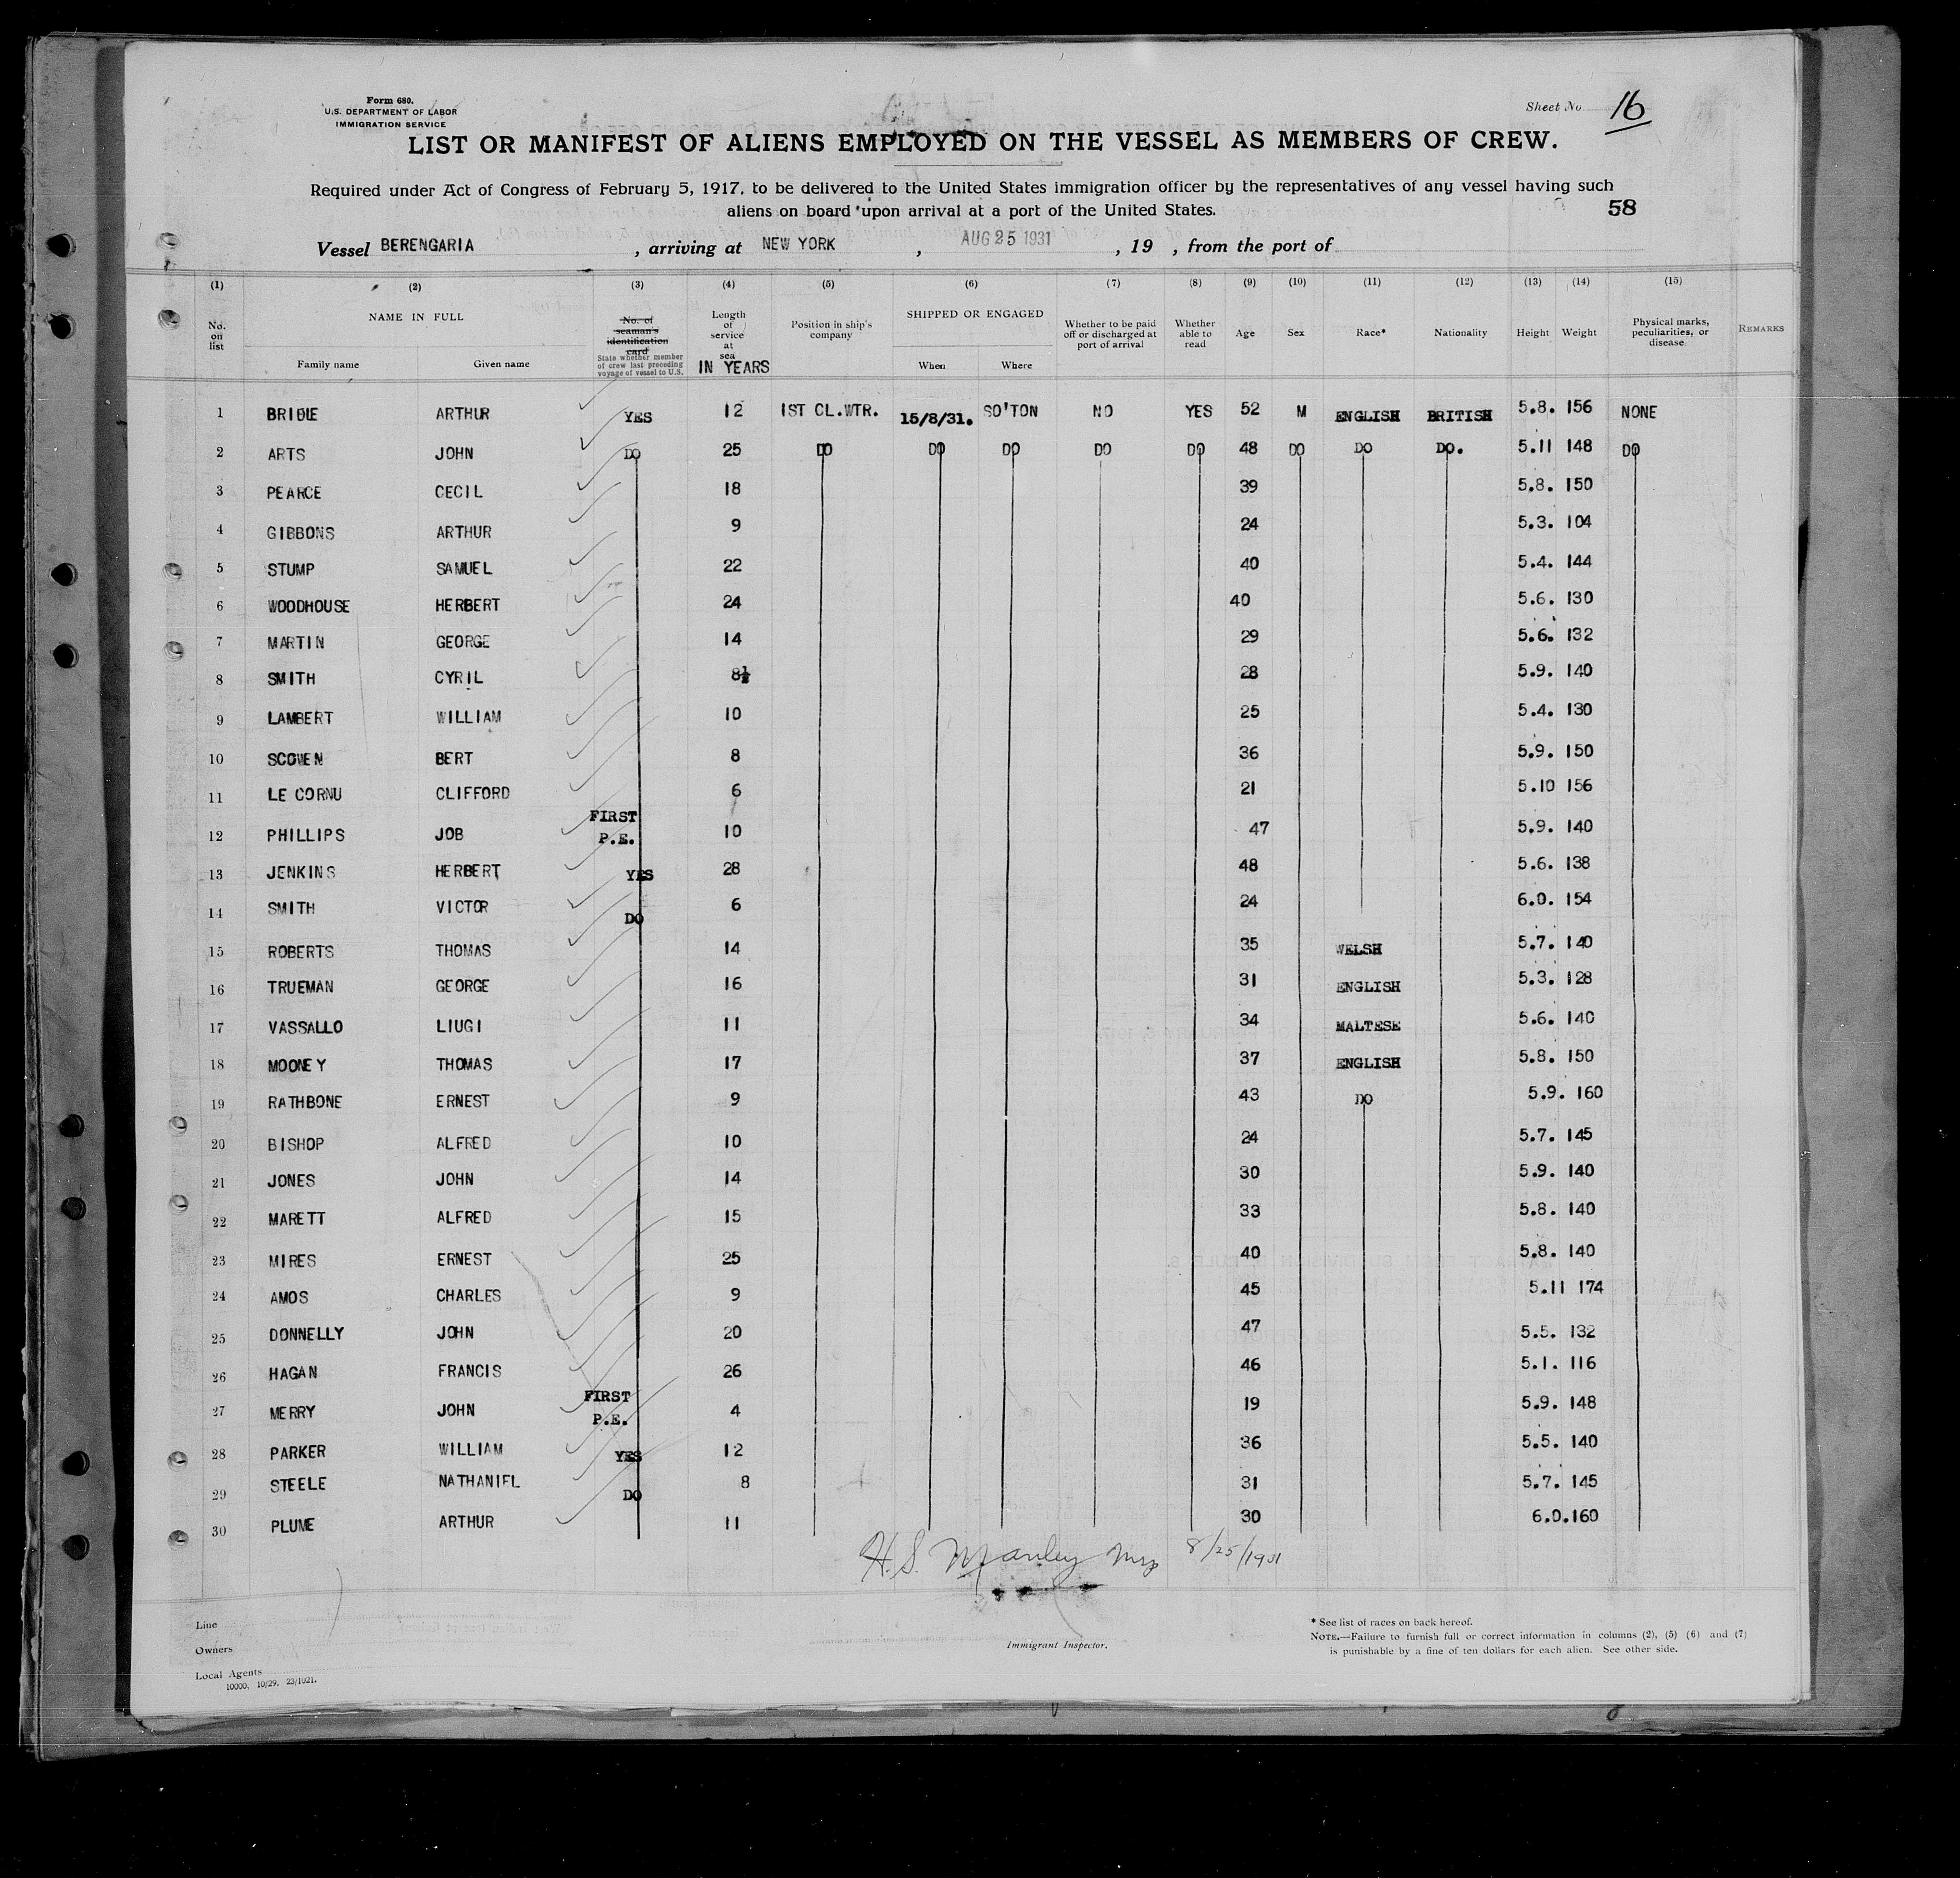 Form 680.
U.S. DEPARTMENT OF LABOR
IMMIGRATION SERVICE
Sheet No 16
LIST OR MANIFEST OF ALIENS EMPLOYED ON THE VESSEL AS MEMBERS OF CREW.
Required under Act of Congress of February 5, 1917, to be delivered to the United States immigration officer by the representatives of any vessel having such
aliens on board upon arrival at a port of the United States.
58
Vessel BERENGARIA , arriving at NEW YORK , AUG 25 1931 , 19 , from the port of
(1) (2) (3) (4) (5) (6) (7) (8) (9) (10) (11) (12) (13) (14) (15)
No. on list
NAME IN FULL
Family name Given name
No. of seaman's identification card
State whether member of crew last preceding voyage of vessel to U.S.
Length of service at sea
IN YEARS
Position in ship's company
SHIPPED OR ENGAGED
When Where
Whether to be paid off or discharged at port of arrival
Whether able to read
Age Sex Race* Nationality Height Weight
Physical marks, peculiarities, or disease
REMARKS
1 BRIDLE ARTHUR YES 12 1ST CL.WTR. 15/8/31. SO'TON NO YES 52 M ENGLISH BRITISH 5.8. 156 NONE
2 ARTS JOHN DO 25 DO DO DO DO DO 48 DO DO DO. 5.11 148 DO
3 PEARCE CECIL 18 39 5.8. 150
4 GIBBONS ARTHUR 9 24 5.3. 104
5 STUMP SAMUEL 22 40 5.4. 144
6 WOODHOUSE HERBERT 24 40 5.6. 130
7 MARTIN GEORGE 14 29 5.6. 132
8 SMITH CYRIL 8½ 28 5.9. 140
9 LAMBERT WILLIAM 10 25 5.4. 130
10 SCOWEN BERT 8 36 5.9. 150
11 LE CORNU CLIFFORD 6 21 5.10 156
12 PHILLIPS JOB FIRST P.E. 10 47 5.9. 140
13 JENKINS HERBERT YES 28 48 5.6. 138
14 SMITH VICTOR DO 6 24 6.0. 154
15 ROBERTS THOMAS 14 35 WELSH 5.7. 140
16 TRUEMAN GEORGE 16 31 ENGLISH 5.3. 128
17 VASSALLO LIUGI 11 34 MALTESE 5.6. 140
18 MOONEY THOMAS 17 37 ENGLISH 5.8. 150
19 RATHBONE ERNEST 9 43 DO 5.9. 160
20 BISHOP ALFRED 10 24 5.7. 145
21 JONES JOHN 14 30 5.9. 140
22 MARETT ALFRED 15 33 5.8. 140
23 MIRES ERNEST 25 40 5.8. 140
24 AMOS CHARLES 9 45 5.11 174
25 DONNELLY JOHN 20 47 5.5. 132
26 HAGAN FRANCIS 26 46 5.1. 116
27 MERRY JOHN FIRST P.E. 4 19 5.9. 148
28 PARKER WILLIAM YES 12 36 5.5. 140
29 STEELE NATHANIEL DO 8 31 5.7. 145
30 PLUME ARTHUR 11 30 6.0.160
H.S. Manley 8/25/1931
Line
Owners
Local Agents
10000, 10/29. 23/1021.
Immigrant Inspector.
* See list of races on back hereof.
NOTE.—Failure to furnish full or correct information in columns (2), (5) (6) and (7)
is punishable by a fine of ten dollars for each alien. See other side.